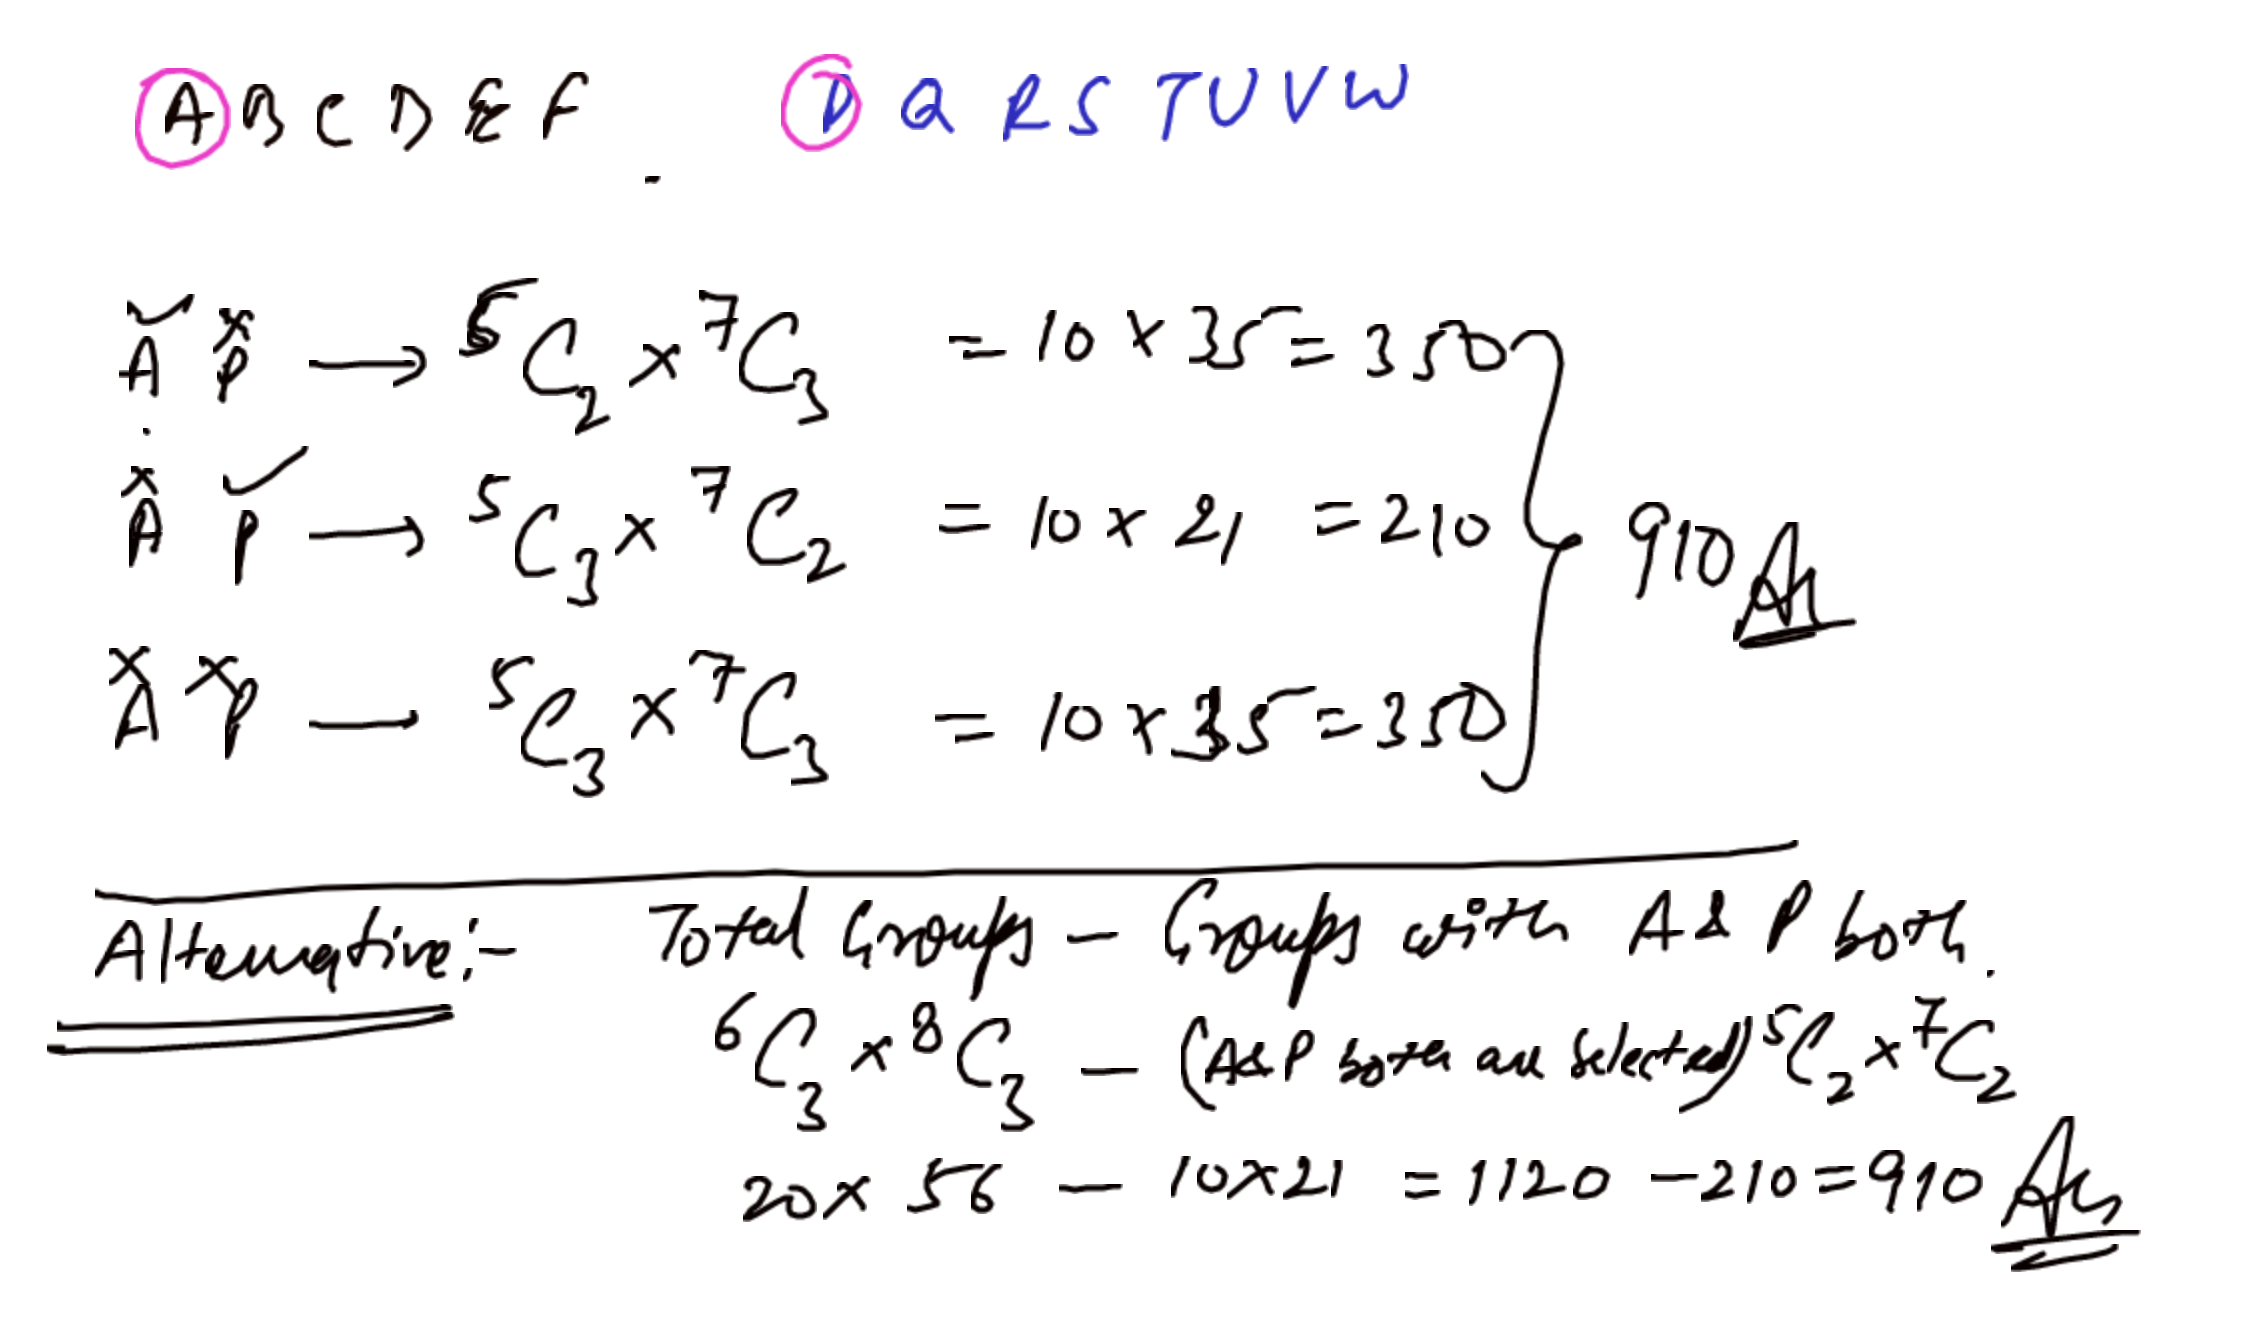 A B C D E F P Q R S T U V W
A P → ⁵C₂ × ⁷C₃ = 10 × 35 = 350
A P → ⁵C₃ × ⁷C₂ = 10 × 21 = 210
910 An
A P — ⁵C₃ × ⁷C₃ = 10 × 35 = 350
Alternative :- Total Groups — Groups with A & P both.
⁶C₃ × ⁸C₃ — (A&P both are selected) ⁵C₂ × ⁷C₂
20 × 56 — 10×21 = 1120 - 210 = 910 An